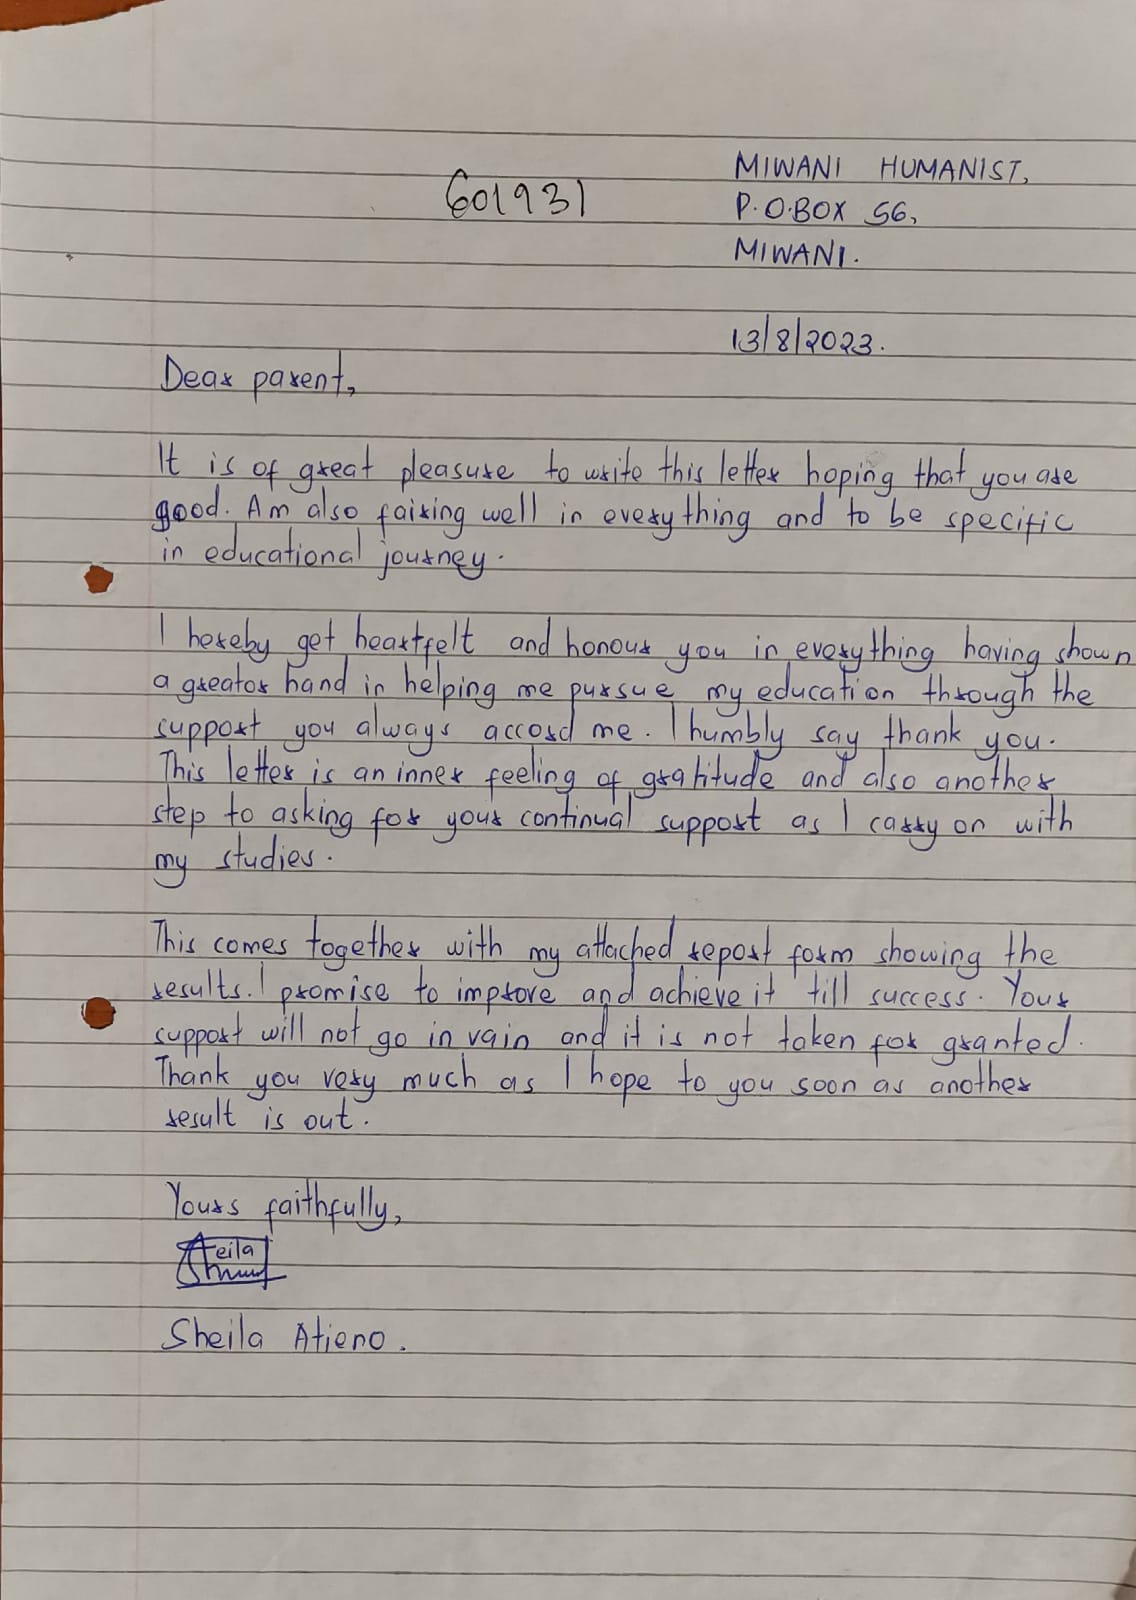 MIWANI HUMANIST,
601931
P.O.BOX 56,
MIWANI.
13/8/2023.
Dear parent,
It is of great pleasure to write this letter hoping that you are
good. Am also fairing well in everything and to be specific
in educational journey.
I hereby get heartfelt and honour you in everything having shown
a greator hand in helping me pursue my education through the
support you always accord me. I humbly say thank you.
This letter is an inner feeling of gratitude and also another
step to asking for your continual support as I carry on with
my studies.
This comes together with my attached report form showing the
results. I promise to improve and achieve it till success. Your
support will not go in vain and it is not taken for granted.
Thank you very much as I hope to you soon as another
result is out.
Yours faithfully,
Sheila Atieno.